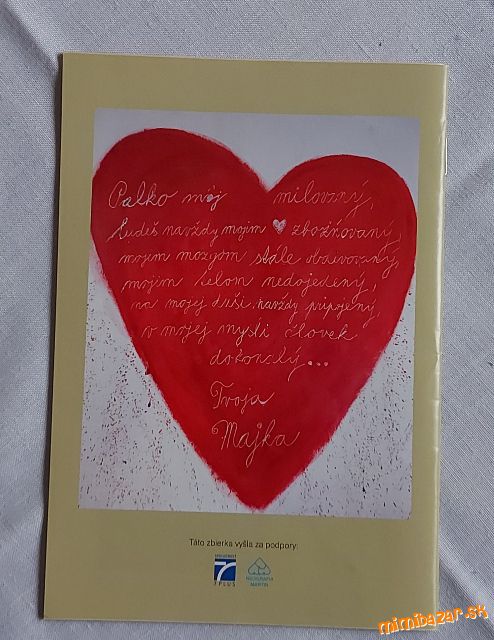 Palko môj milovaný,
budeš navždy mojim zbožňovaný,
mojim mozgom stále obdivovaný,
mojim telom nedojedený,
na mojej duši navždy pripojený,
v mojej mysli človek
dokonalý...
Tvoja
Majka
Táto zbierka vyšla za podpory:
7 PLUS
NEOGRAFIA
MARTIN
mimibazar.sk